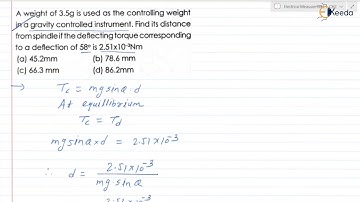 Ekeeda
A weight of 3.5g is used as the controlling weight
in a gravity controlled instrument. Find its distance
from spindle if the deflecting torque corresponding
to a deflection of 58° is 2.51x10⁻³Nm
(a) 45.2mm (b) 78.6 mm
(c) 66.3 mm (d) 86.2mm
→ Tc = mg sinQ · d
At equilibrium
Tc = Td
mg sinQ x d = 2.51 x 10⁻³
∴ d = 2.51 x 10⁻³
mg · sinQ